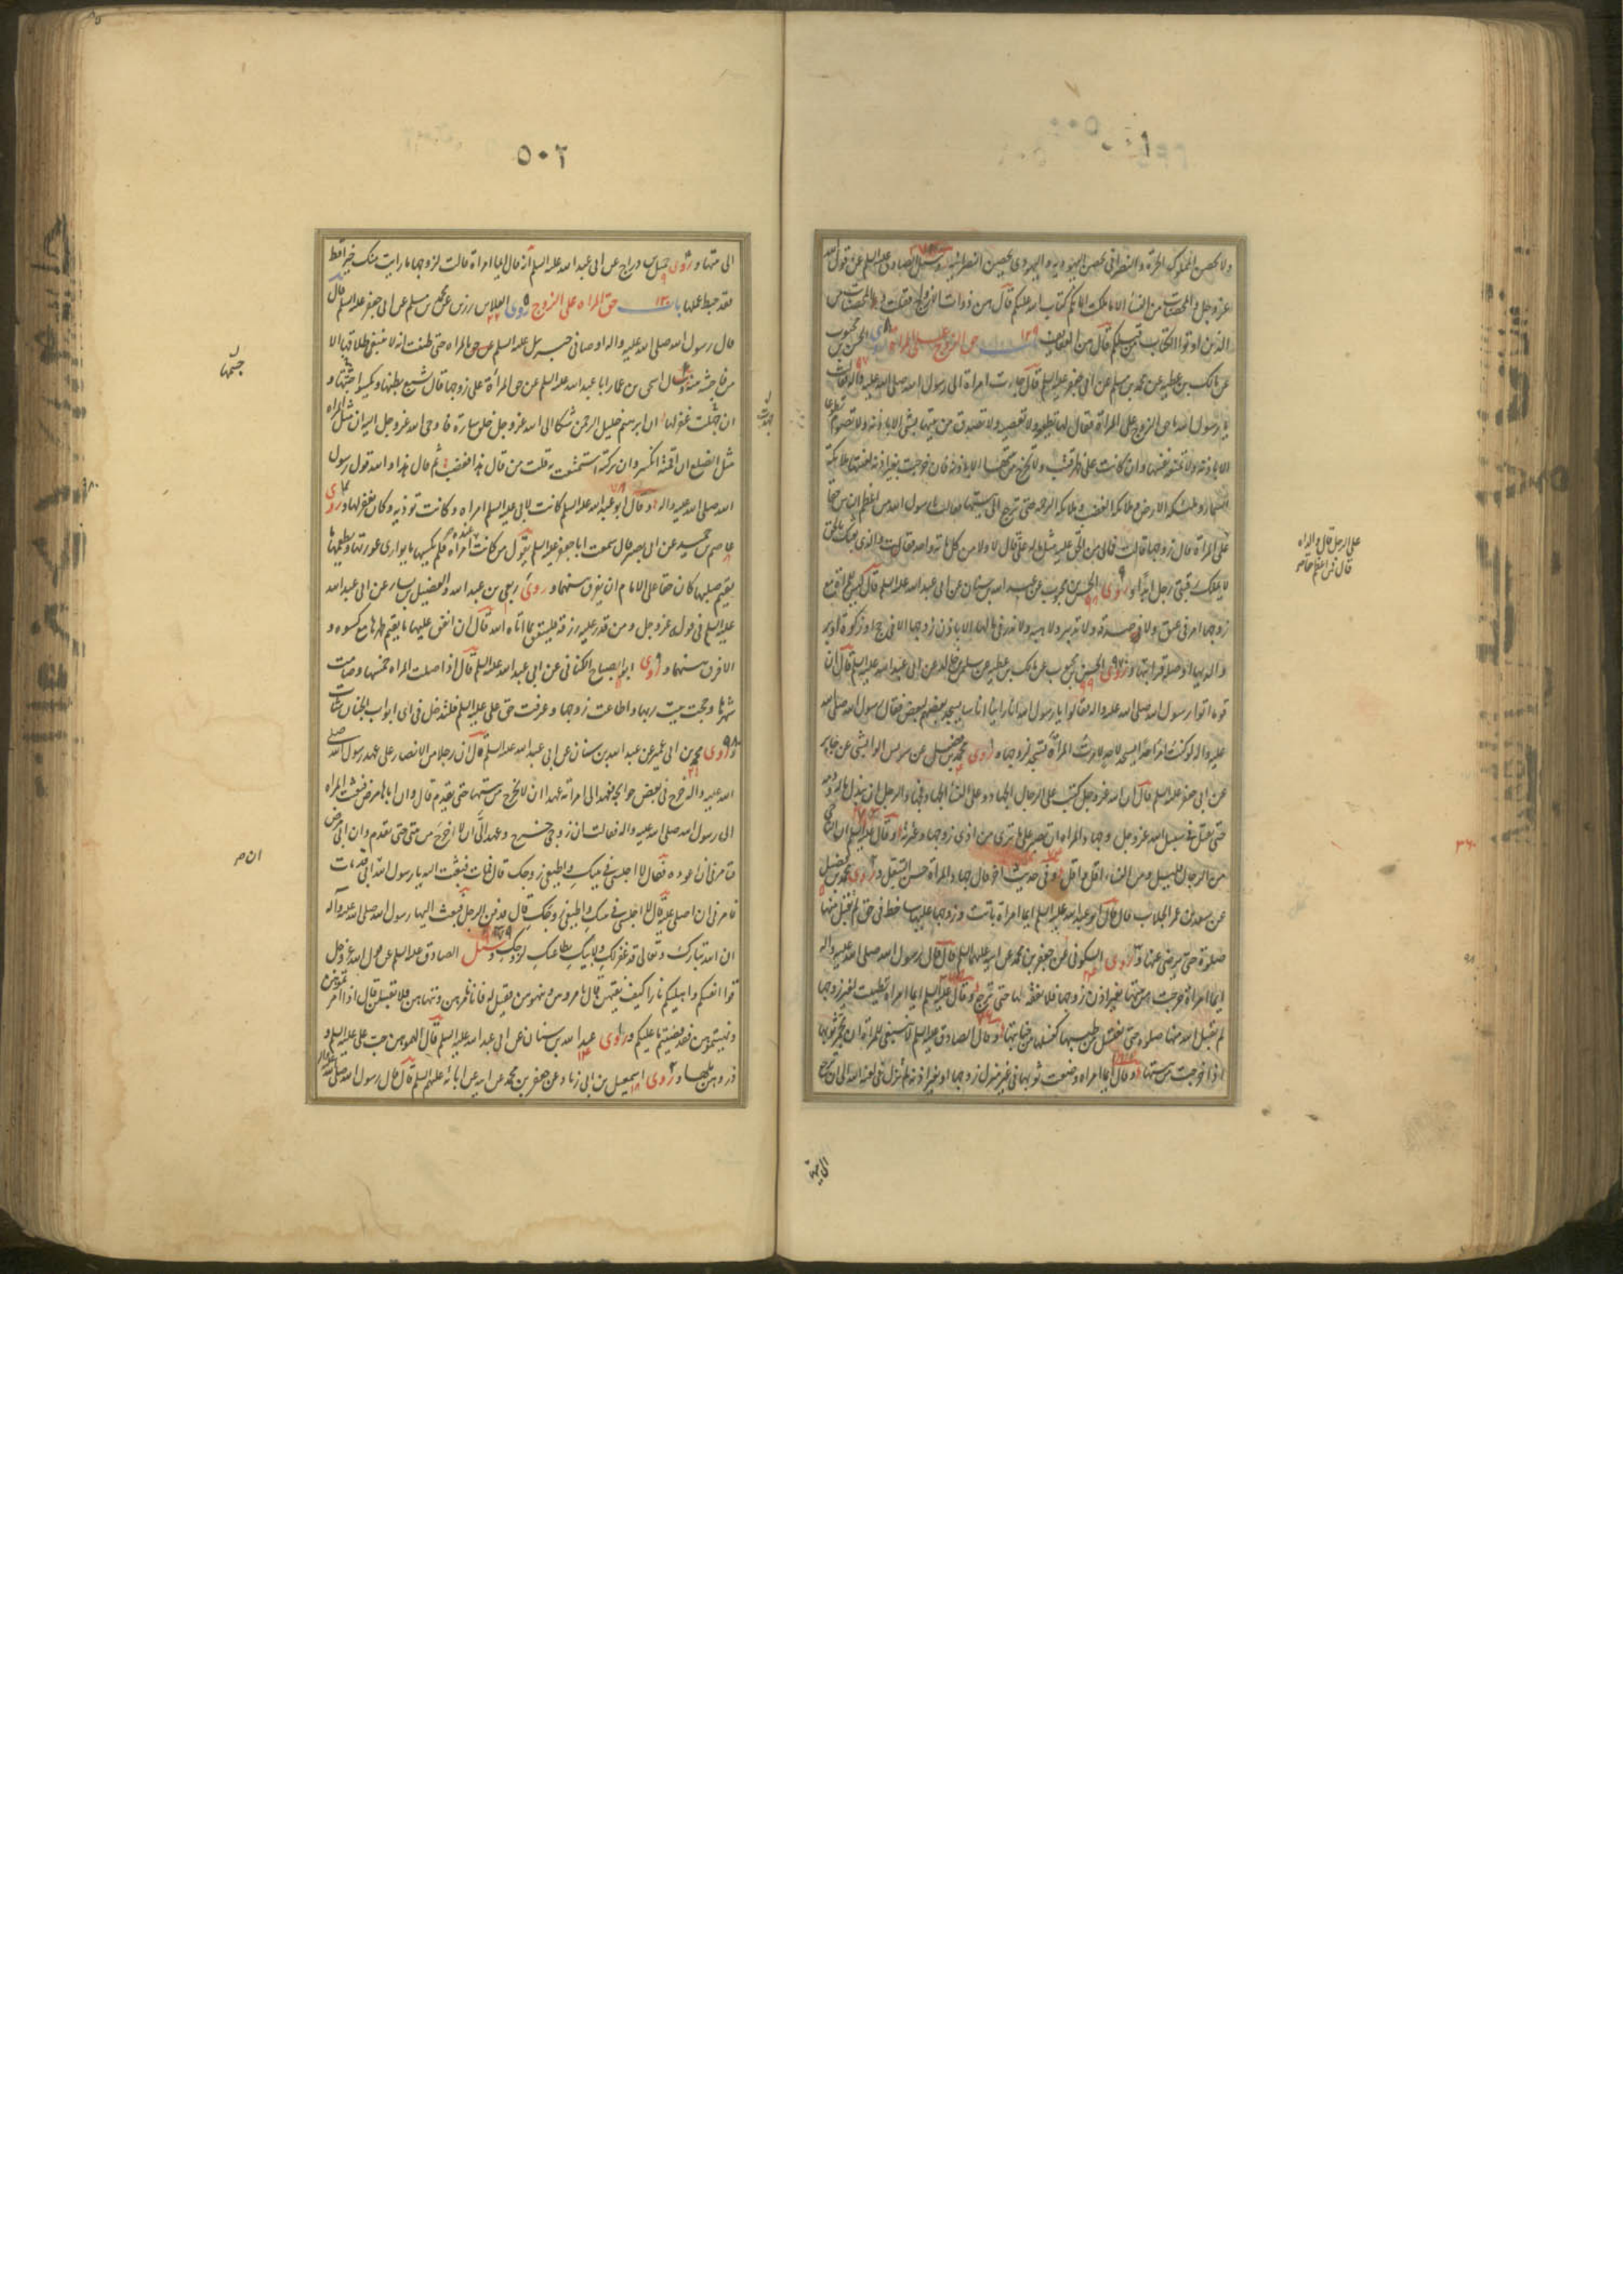 ولا يحصن المملوك الحرة والنصراني يحصن اليهودية واليهودي يحصن النصرانية وسئل الصادق عليه السلم عن قول الله
عز وجل والمحصنات من النساء الا ما ملكت ايمانكم كتاب الله عليكم قال هن ذوات الازواج فقلت والمحصنات من
الذين اوتوا الكتاب من قبلكم قال هن العفايف باب حق الزوج على المراة روى الحسن بن محبوب
عن مالك بن عطيه عن محمد بن مسلم عن ابي جعفر عليه السلم قال جاءت امراة الى رسول الله صلى الله عليه واله فقالت
يا رسول الله ما حق الزوج على المراة فقال لها تطيعه ولا تعصيه ولا تصدق من بيتها بشئ الا باذنه ولا تصوم تطوعا
الا باذنه ولا تمنعه نفسها وان كانت على ظهر قتب ولا تخرج من بيتها الا باذنه فان خرجت بغير اذنه لعنتها ملائكة
السماء وملئكه الارض وملائكه الغضب وملائكه الرحمه حتى ترجع الى بيتها فقالت يا رسول الله من اعظم الناس حقا
على المراة قال زوجها قالت فمالي من الحق عليه مثل ما له علي قال لا ولا من كل مائة واحد فقالت والذي بعثك بالحق
لا يملك رقبتي رجل ابدا وروى الحسن بن محبوب عن عبد الله بن سنان عن ابي عبد الله عليه السلم قال ليس للمراة مع
زوجها امر في عتق ولا في صدقه ولا تدبير ولا هبه ولا نذر في مالها الا باذن زوجها الا في حج او زكوة او بر
والديها او صله قرابتها وروى الحسن بن محبوب عن مالك بن عطيه عن سليمن بن خالد عن ابي عبد الله عليه السلم قال ان
قوما اتوا رسول الله صلى الله عليه واله فقالوا يا رسول الله انا راينا اناسا يسجد بعضهم لبعض فقال رسول الله صلى الله
عليه واله لو كنت امر احدا ان يسجد لاحد لامرت المراة ان تسجد لزوجها وروى محمد بن الفضيل عن الوابشي عن جابر
عن ابي جعفر عليه السلم قال ان الله عز وجل كتب على الرجال الجهاد وعلى النساء الجهاد فجهاد الرجل ان يبذل ماله ودمه
حتى يقتل في سبيل الله عز وجل وجهاد المراه ان تصبر على ما ترى من اذى زوجها وغيرته وقال عليه السلم ان الناجي
من الرجال قليل ومن النساء اقل واقل وفي حديث اخر قال جهاد المراة حسن التبعل وروى محمد بن الفضيل
عن سعد بن عمر الجلاب قال قال ابو عبد الله عليه السلم ايما امراة باتت وزوجها عليها ساخط في حق لم تقبل منها
صلوة حتى يرضى عنها وروى السكوني عن جعفر بن محمد عن ابيه عليهما السلم قال قال رسول الله صلى الله عليه واله
ايما امراة خرجت من بيتها بغير اذن زوجها فلا نفقه لها حتى ترجع وقال عليه السلم ايما امراة تطيبت لغير زوجها
لم يقبل الله منها صلوة حتى تغتسل من طيبها كغسلها من جنابتها وقال الصادق عليه السلم لا ينبغي للمراة ان تجمر ثوبها
اذا خرجت من بيتها وقال ايما امراه وضعت ثوبها في غير منزل زوجها او بغير اذنه لم تزل في لعنة الله الى ان ترجع
على الرجل قال والداه
٥٠٢
الى بيتها وروى جميل بن دراج عن ابي عبد الله عليه السلم انه قال ايما امراة قالت لزوجها ما رايت منك خيرا قط
فقد حبط عملها باب ١٣٠ حق المراه على الزوج روى العلاء بن رزين عن محمد بن مسلم عن ابي جعفر عليه السلم قال
قال رسول الله صلى الله عليه واله اوصاني جبريل عليه السلم بالمراه حتى ظننت انه لا ينبغي طلاقها الا
من فاحشه مبينه وسال اسحق بن عمار ابا عبد الله عليه السلم عن حق المراة على زوجها قال يشبع بطنها ويكسوا جثتها و
ان جهلت غفر لها ان ابرهيم خليل الرحمن شكا الى الله عز وجل خلق ساره فاوحى الله عز وجل اليه ان مثل المراه
مثل الضلع ان اقمته انكسر وان تركته استمتعت به قلت من قال هذا فغضب ثم قال هذا والله قول رسول
الله صلى الله عليه واله وقال ابو عبد الله عليه السلم كانت لابي عليه السلم امراه وكانت توذيه وكان يغفر لها وروى
عاصم بن حميد عن ابي بصير قال سمعت ابا جعفر عليه السلم يقول من كانت عنده امراة فلم يكسها ما يوارى عورتها ويطعمها ما
يقيم صلبها كان حقا على الامام ان يفرق بينهما وروى ربعي بن عبد الله والفضيل بن يسار عن ابي عبد الله
عليه السلم في قوله عز وجل ومن قدر عليه رزقه فلينفق مما اتاه الله قال ان انفق عليها ما يقيم ظهرها مع كسوه و
الا فرق بينهما وروى ابو الصباح الكناني عن ابي عبد الله عليه السلم قال اذا صلت المراه خمسها وصامت
شهرها وحجت بيت ربها واطاعت زوجها وعرفت حق علي عليه السلم فلتدخل من اي ابواب الجنان شاءت
وروى محمد بن ابي عمير عن عبد الله بن سنان عن ابي عبد الله عليه السلم قال ان رجلا من الانصار على عهد رسول الله صلى
الله عليه واله خرج في بعض حوايجه فعهد الى امراته عهدا ان لا تخرج من بيتها حتى يقدم قال وان اباها مرض فبعثت المراه
الى رسول الله صلى الله عليه واله فقالت ان زوجي خرج وعهد الى ان لا اخرج من بيتي حتى يقدم وان ابي مرض
فتامرني ان اعوده فقال لا اجلسي في بيتك واطيعي زوجك قال فمات فبعثت اليه يا رسول الله ان ابي قد مات
فتامرني ان اصلي عليه قال لا اجلسي في بيتك واطيعي زوجك قال فدفن الرجل فبعث اليها رسول الله صلى الله عليه وآله
ان الله تبارك وتعالى قد غفر لك ولابيك بطاعتك لزوجك وسئل الصادق عليه السلم عن قول الله عز وجل
قوا انفسكم واهليكم نارا كيف نقيهن قال تامرونهن وتنهونهن قيل له فانا نامرهن وننهاهن فلا يقبلن قال اذا امرتموهن
ونهيتموهن فقد قضيتم ما عليكم وروى عبد الله بن سنان عن ابي عبد الله عليه السلم قال الهموهن حب علي عليه السلم و
ذروهن بلها وروى اسمعيل بن ابي زياد عن جعفر بن محمد عن ابيه عن ابائه عليهم السلم قال قال رسول الله صلى الله عليه واله
الى بيتها